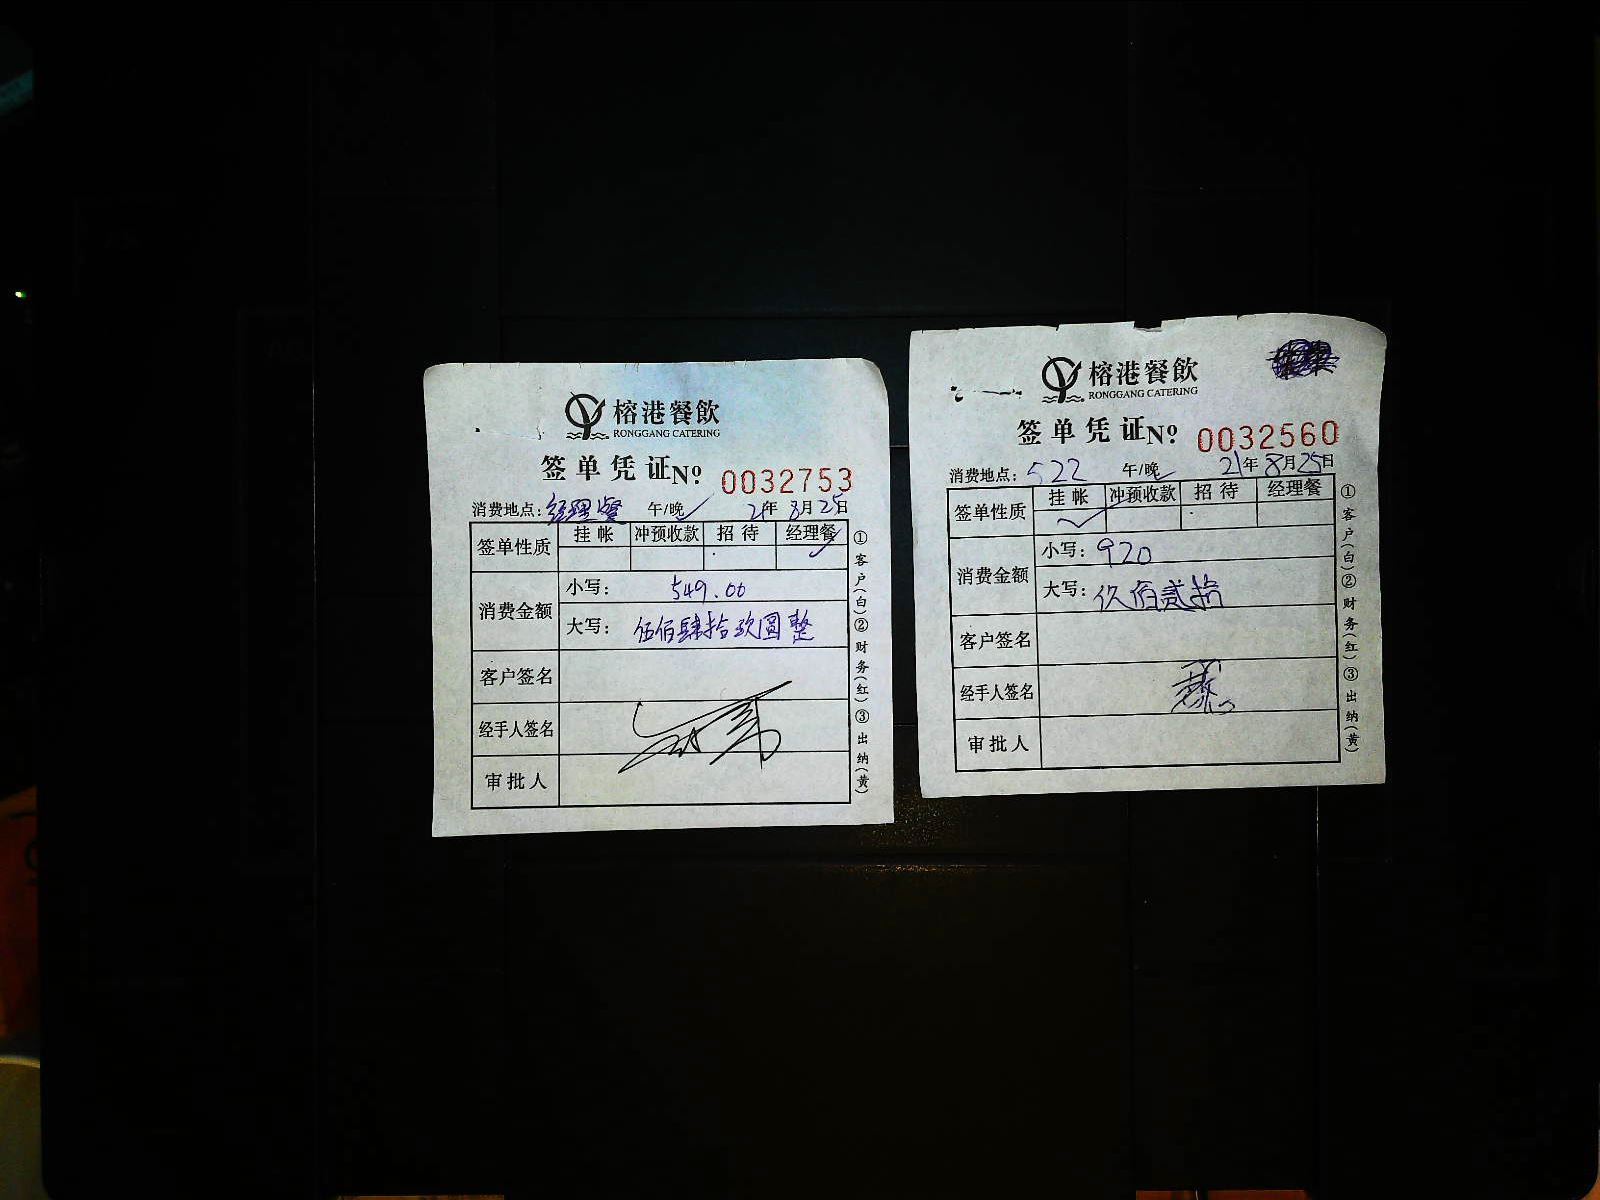 榕港餐飲
RONGGANG CATERING
签单凭证№ 0032753
消费地点：经理餐 午/晚✓ 21年8月25日
签单性质 挂帐 冲预收款 招待 经理餐
✓
消费金额
小写： 549.00
大写： 伍佰肆拾玖圆整
客户签名
经手人签名
审批人
①客户(白)②财务(红)③出纳(黄)
榕港餐飲
RONGGANG CATERING
签单凭证№ 0032560
消费地点：522 午/晚✓ 21年8月25日
签单性质 挂帐 冲预收款 招待 经理餐
✓
消费金额
小写：920
大写：玖佰贰拾
客户签名
经手人签名
审批人
①客户(白)②财务(红)③出纳(黄)